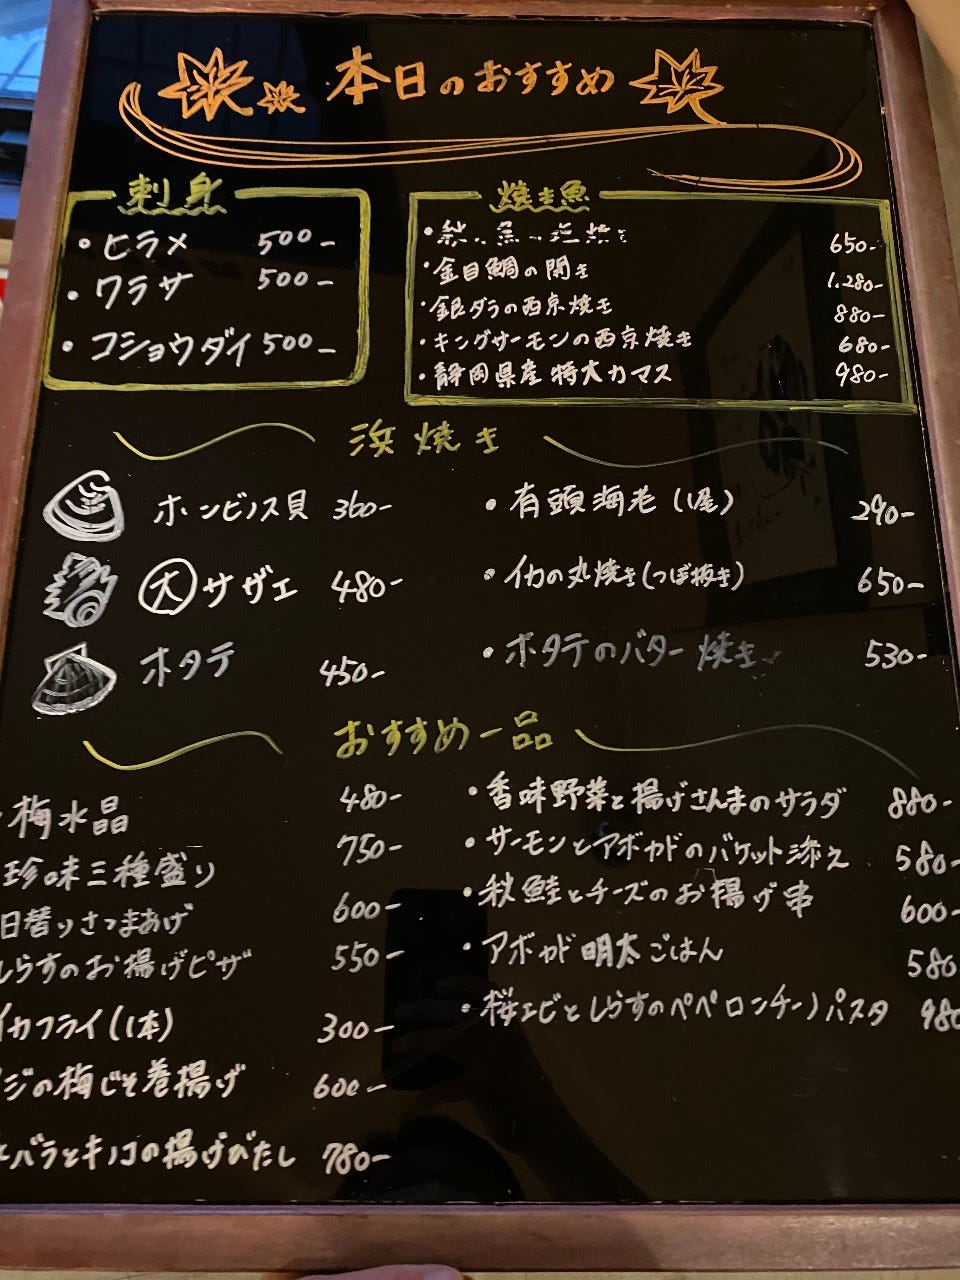 本日のおすすめ
刺身
・ヒラメ 500-
・ワラサ 500-
・コショウダイ 500-
焼き魚
650-
・金目鯛の開き 1,280-
・銀ダラの西京焼き 880-
・キングサーモンの西京焼き 680-
・静岡県産 特大カマス 980-
浜焼き
ホンビノス貝 360-
大サザエ 480-
ホタテ 450-
・有頭海老(1尾) 290-
・イカの丸焼き(つぼ抜き) 650-
・ホタテのバター焼き 530-
おすすめ一品
・梅水晶 480-
珍味三種盛り 750-
日替りさつまあげ 600-
しらすのお揚げピザ 550-
イカフライ(1本) 300-
ジの梅じそ巻揚げ 600-
バラとキノコの揚げびたし 780-
・香味野菜と揚げさんまのサラダ 880-
・サーモンとアボカドのバケット添え 580-
・秋鮭とチーズのお揚げ串 600-
・アボカド明太ごはん 580
・桜エビとしらすのペペロンチーノパスタ 980